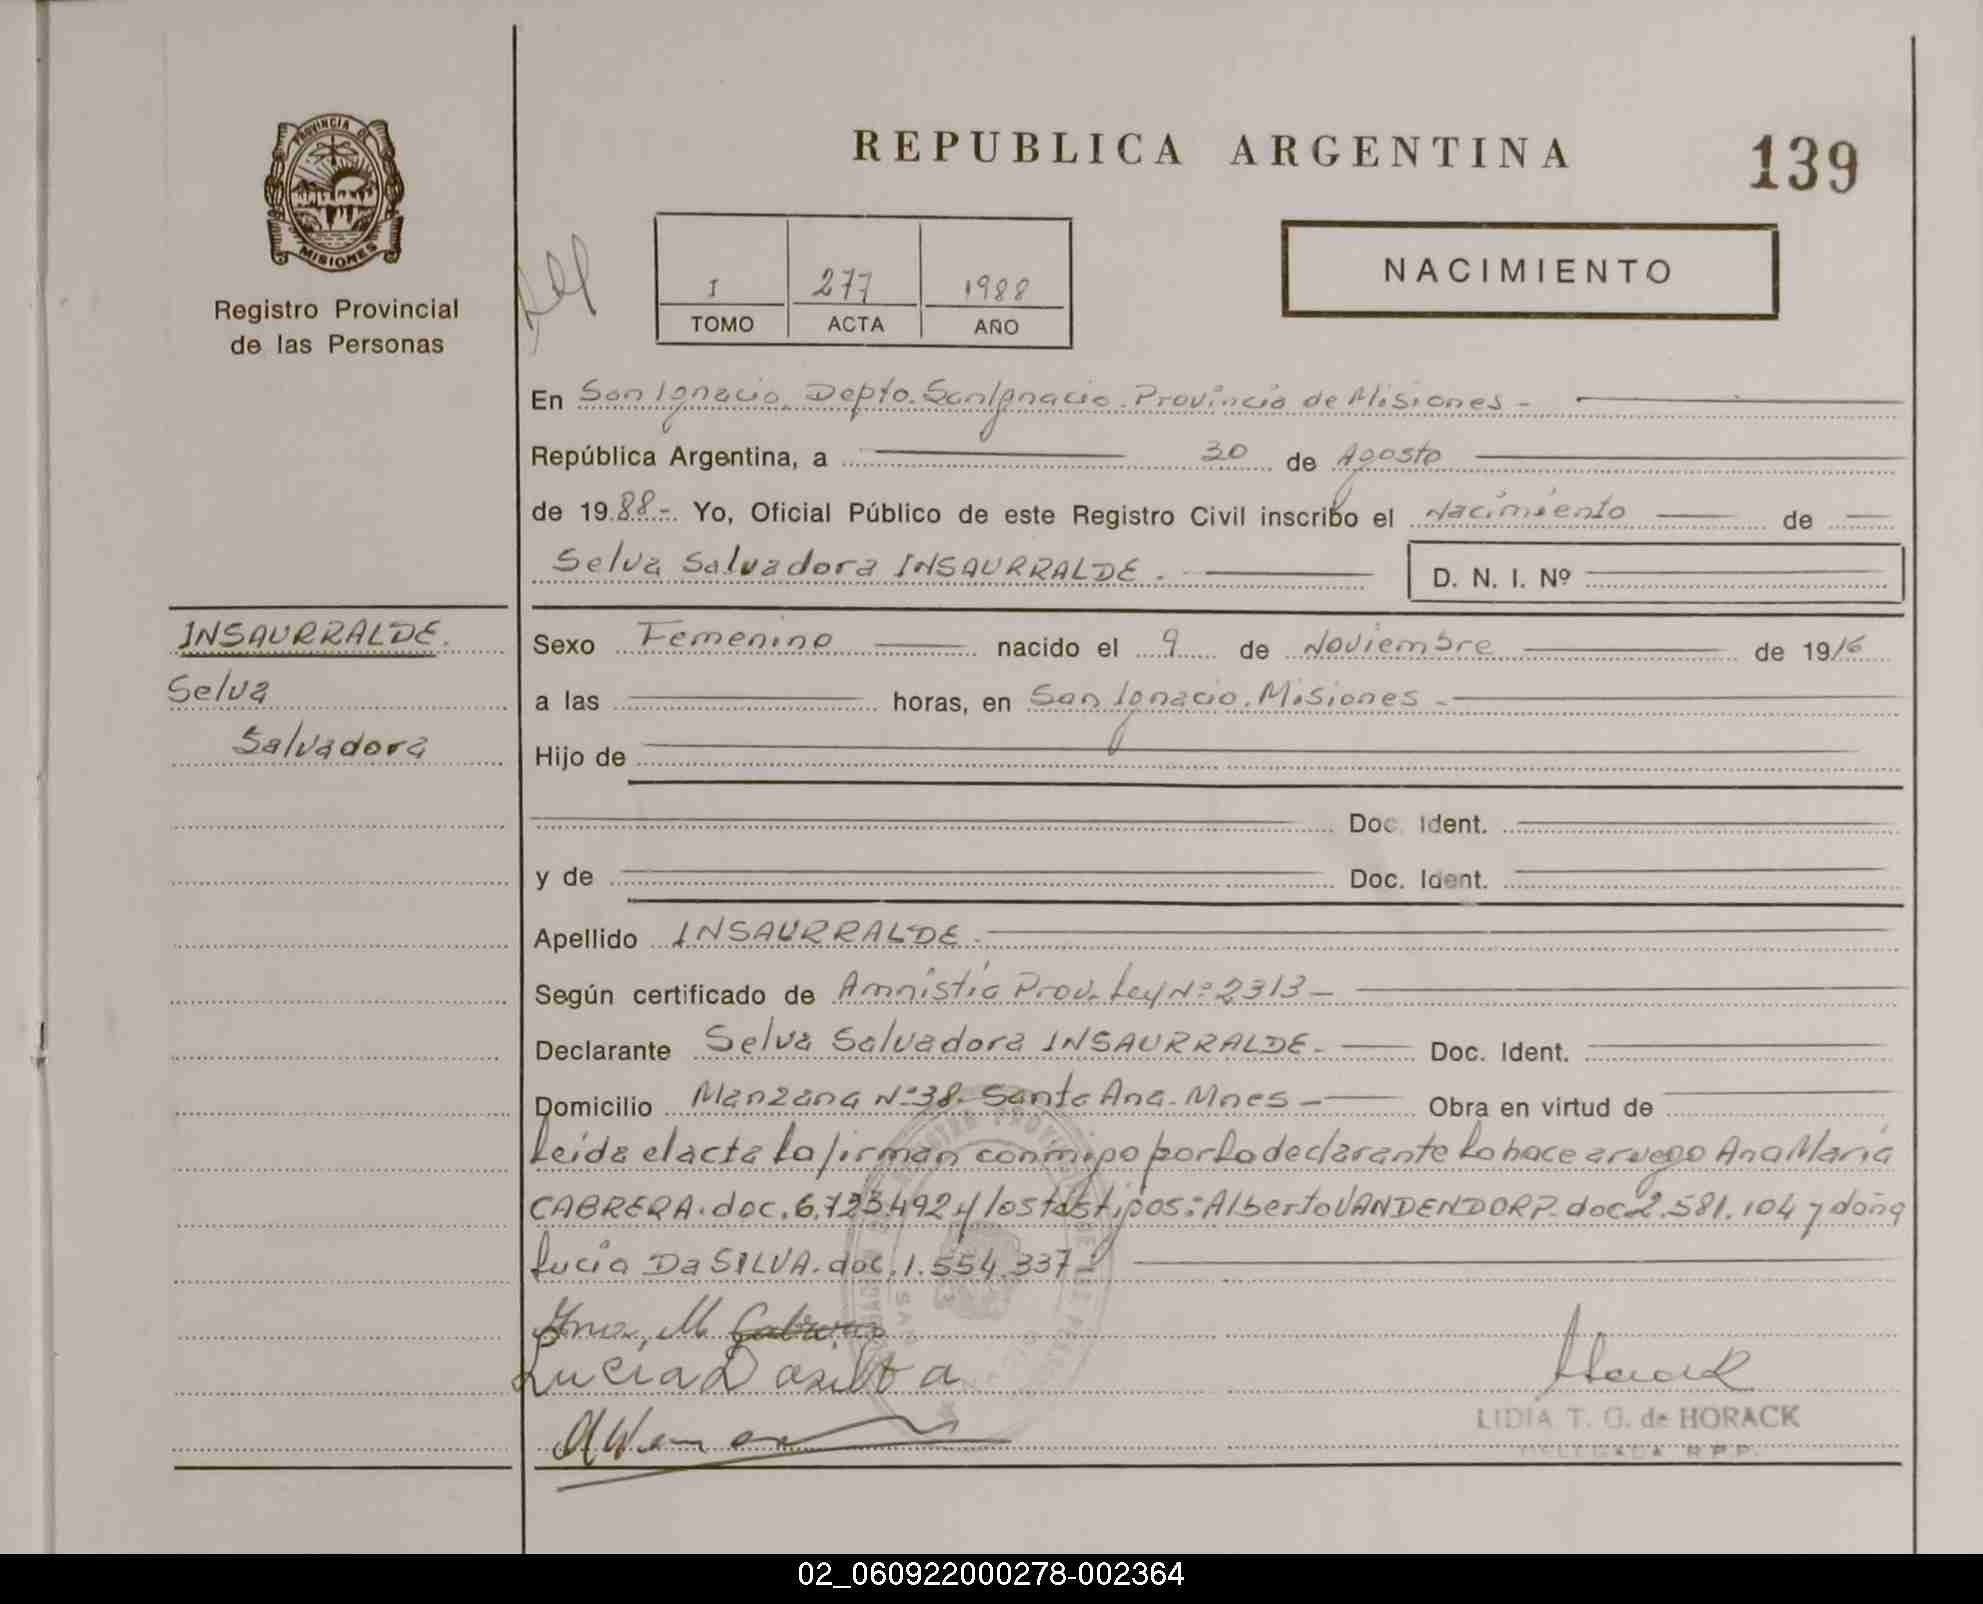 PROVINCIA DE
MISIONES
Registro Provincial
de las Personas
REPUBLICA ARGENTINA
139
I 277 1988
TOMO ACTA AÑO
NACIMIENTO
En San Ignacio. Depto. San Ignacio. Provincia de Misiones -
República Argentina, a 30 de Agosto
de 19 88 -. Yo, Oficial Público de este Registro Civil inscribo el Nacimiento de
Selva Salvadora INSAURRALDE. D. N. I. Nº
INSAURRALDE.
Selva
Salvadora
Sexo Femenino nacido el 9 de Noviembre de 19 16
a las horas, en San Ignacio. Misiones -
Hijo de
Doc. Ident.
y de Doc. Ident.
Apellido INSAURRALDE.
Según certificado de Amnistia Prov. Ley Nº 2313 -
Declarante Selva Salvadora INSAURRALDE. - Doc. Ident.
Domicilio Manzana Nº 38. Santa Ana. Mnes - Obra en virtud de
Leida el acta la firman conmigo por la declarante lo hace a ruego Ana María
CABRERA. doc. 6.723.492 y los testigos: Alberto VANDENDORP. doc 2.581.104 y doña
Lucia Da SILVA. doc. 1.554.337 -
Ana M Cabrera
Lucia Dasilva
Horack
LIDIA T. G. de HORACK
DELEGADA R.P.P.
02_060922000278-002364